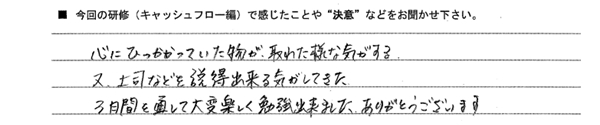 ■ 今回の研修（キャッシュフロー編）で感じたことや“決意”などをお聞かせ下さい。
心にひっかかっていた物が、取れた様な気がする。
又、上司などを説得出来る気がしてきた
3日間を通して大変楽しく勉強出来ました、ありがとうございます